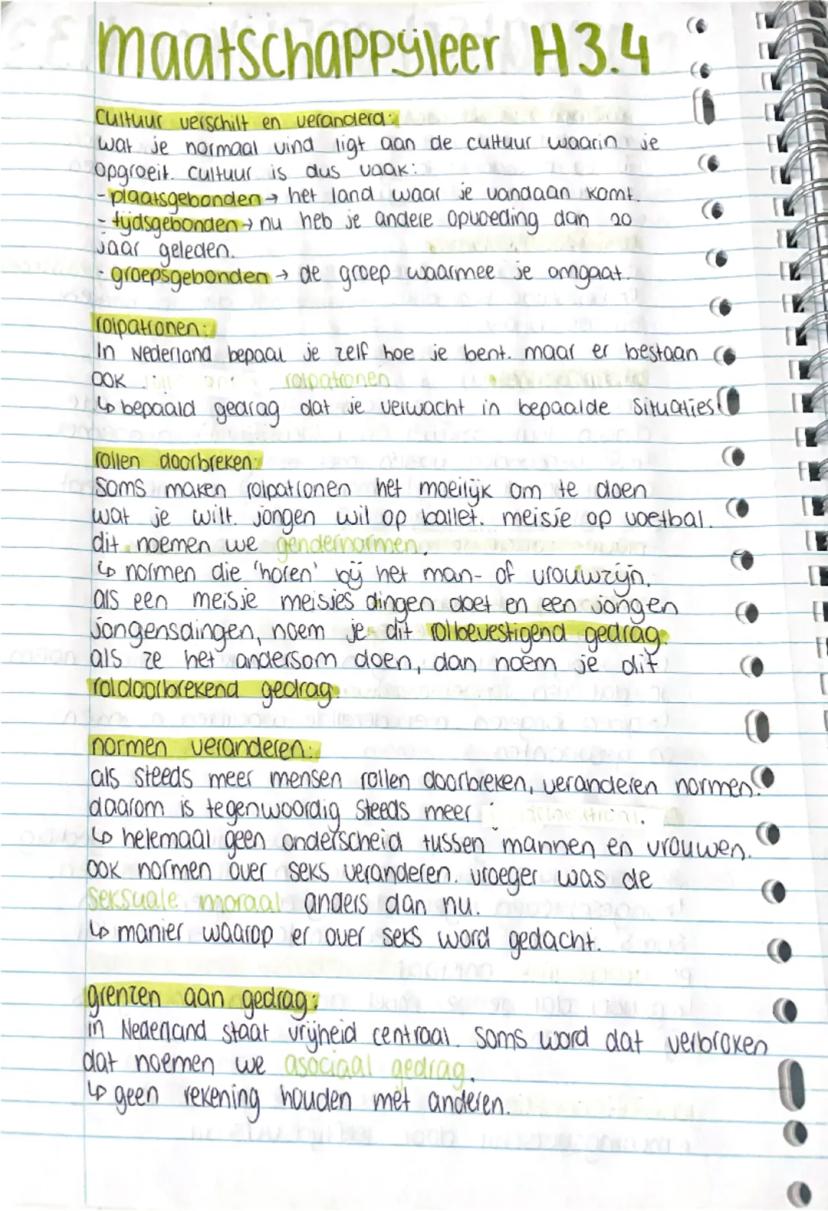 maatschappijleer H3.4
cultuur verschilt en veranderd:
wat je normaal vind ligt aan de cultuur waarin je
opgroeit. cultuur is dus vaak:
- plaatsgebonden → het land waar je vandaan komt.
- tijdsgebonden → nu heb je andere opvoeding dan 20
jaar geleden.
- groepsgebonden → de groep waarmee je omgaat.
rolpatronen:
In Nederland bepaal je zelf hoe je bent. maar er bestaan
ook rolpatronen
↳ bepaald gedrag dat je verwacht in bepaalde situaties.
rollen doorbreken:
soms maken rolpatronen het moeilijk om te doen
wat je wilt. jongen wil op ballet. meisje op voetbal.
dit noemen we gendernormen.
↳ normen die 'horen' bij het man- of vrouwzijn.
als een meisje meisjes dingen doet en een jongen
jongensdingen, noem je dit rolbevestigend gedrag.
als ze het andersom doen, dan noem je dit
roldoorbrekend gedrag.
normen veranderen:
als steeds meer mensen rollen doorbreken, veranderen normen.
daarom is tegenwoordig steeds meer
↳ helemaal geen onderscheid tussen mannen en vrouwen.
ook normen over seks veranderen. vroeger was de
seksuale moraal anders dan nu.
↳ manier waarop er over seks word gedacht.
grenzen aan gedrag:
in Nederland staat vrijheid centraal. soms word dat verbroken
dat noemen we asociaal gedrag.
↳ geen rekening houden met anderen.